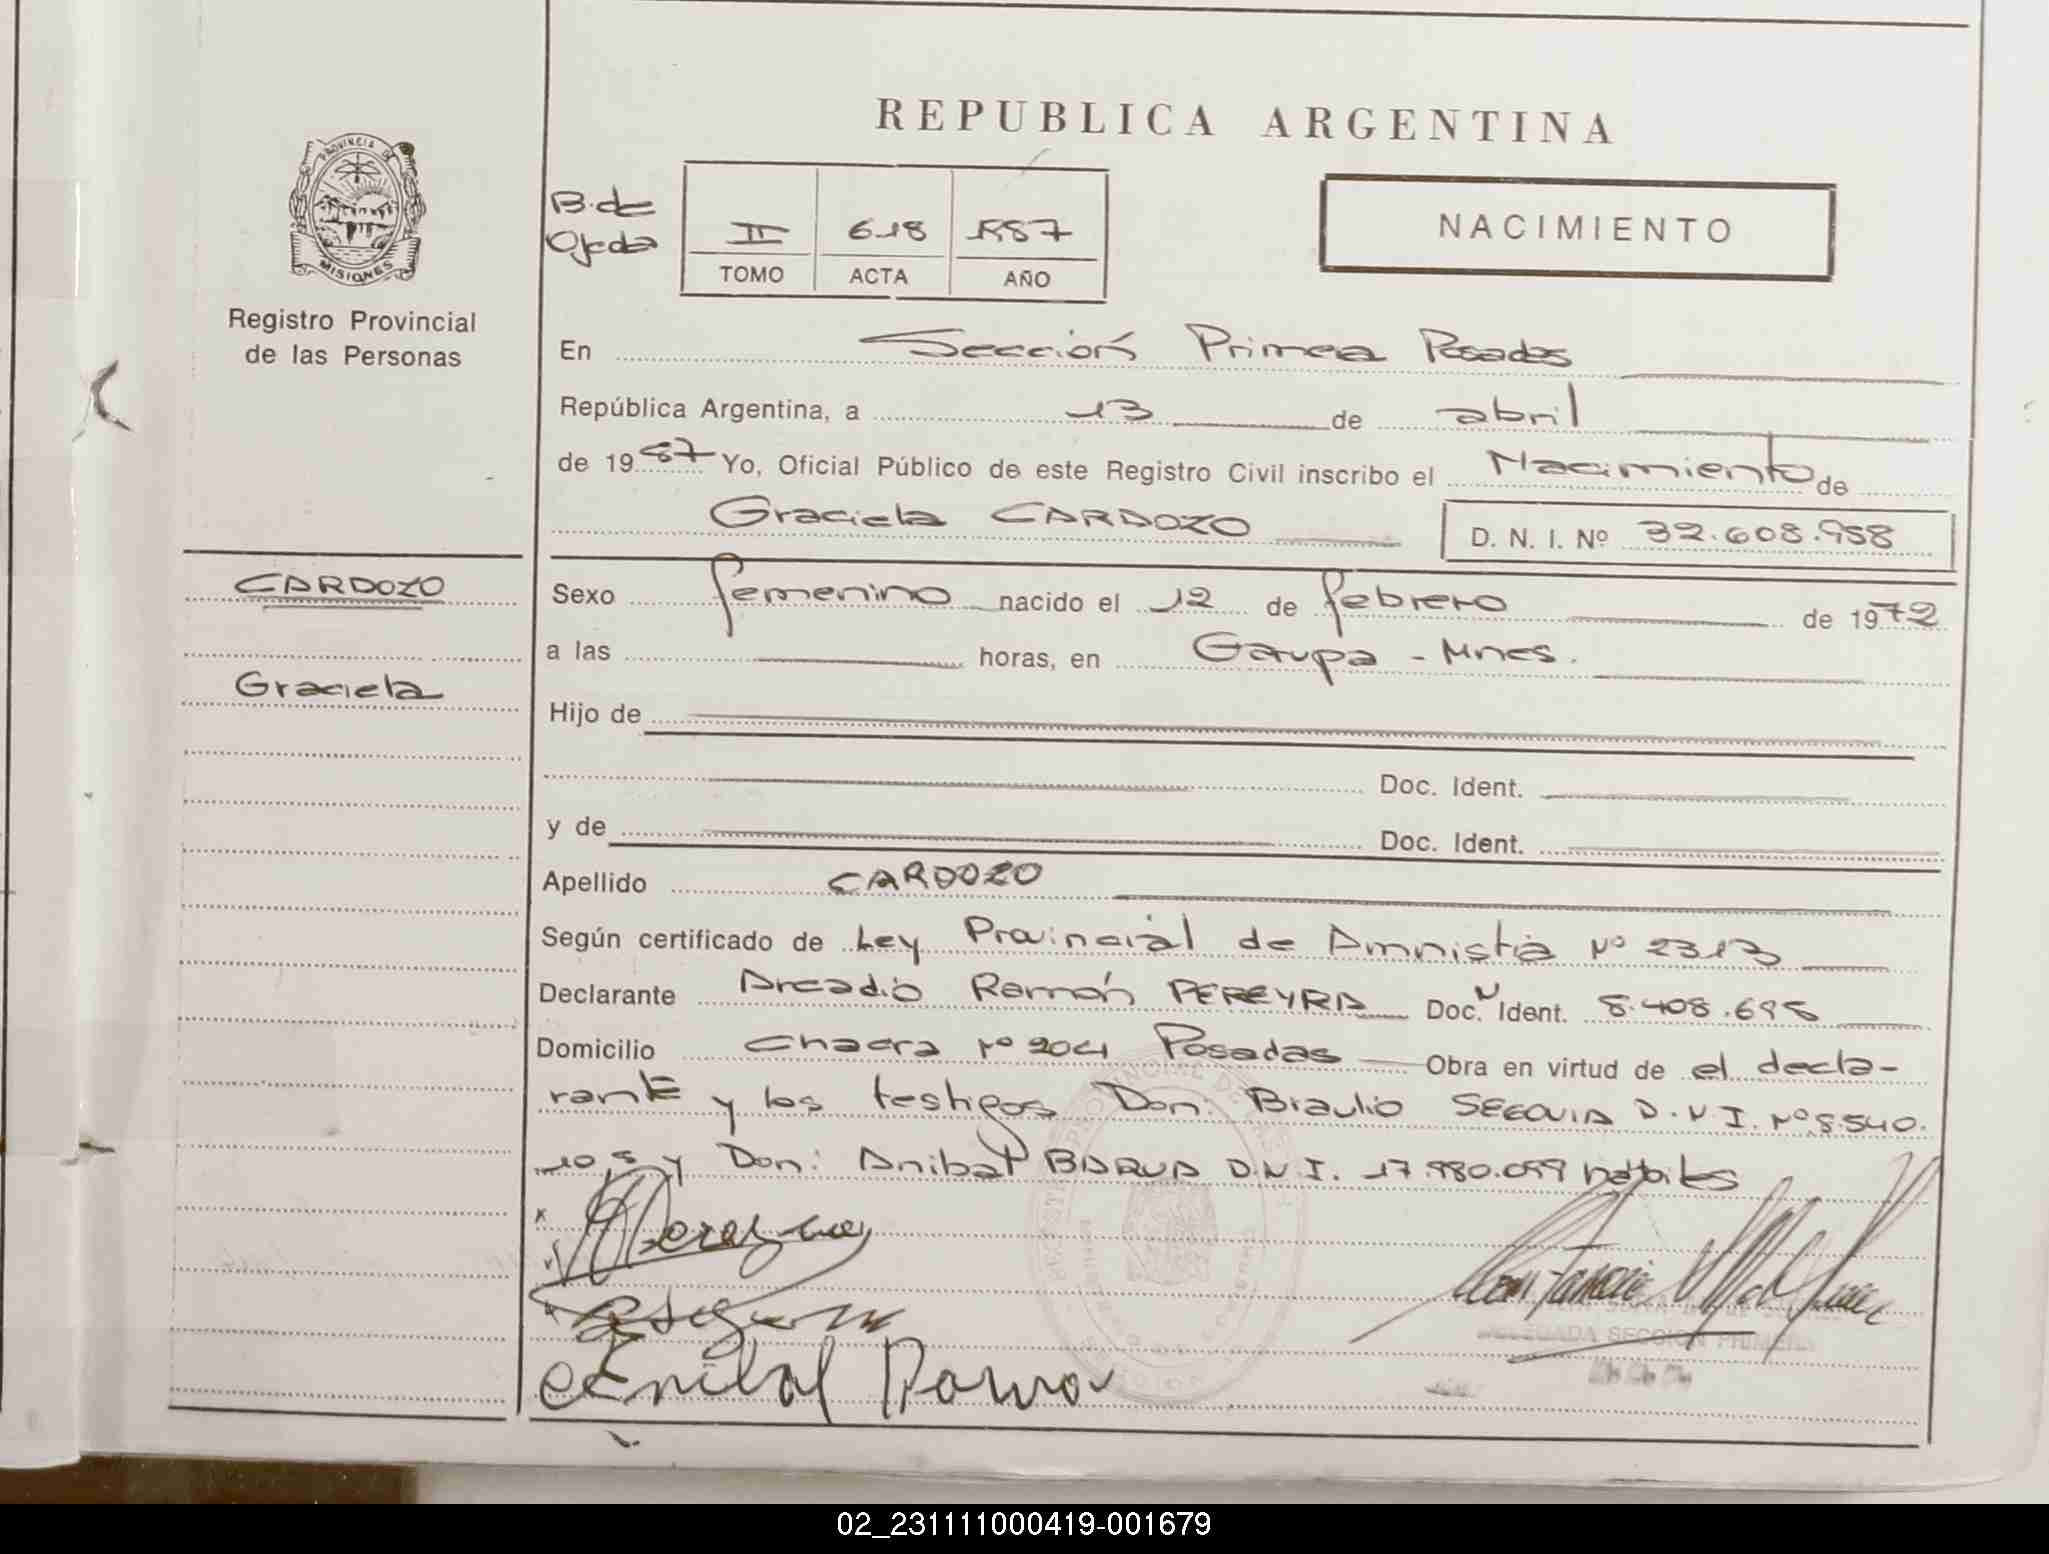 REPUBLICA ARGENTINA
PROVINCIA DE
MISIONES
Registro Provincial
de las Personas
B. de
Ojeda
II 618 1987
TOMO ACTA AÑO
NACIMIENTO
En Sección Primera Posadas
República Argentina, a 13 de abril
de 1987 Yo, Oficial Público de este Registro Civil inscribo el Nacimiento de
Graciela CARDOZO D. N. I. Nº 32.608.958
CARDOZO
Graciela
Sexo femenino nacido el 12 de febrero de 1972
a las horas, en Garupa - Mnes.
Hijo de
Doc. Ident.
y de Doc. Ident.
Apellido CARDOZO
Según certificado de Ley Provincial de Amnistia Nº 2313
Declarante Arcadio Ramón PEREYRA Doc. Ident. 8.408.698
Domicilio Chacra Nº 204 Posadas Obra en virtud de el decla-
rante y los testigos Don: Braulio SEGOVIA D.N.I. Nº 8.540.
y Don: Anibal BARUA D.N.I. 17.980.099 habiles
Anibal Barua
DELEGADA SECCION PRIMERA
02_231111000419-001679